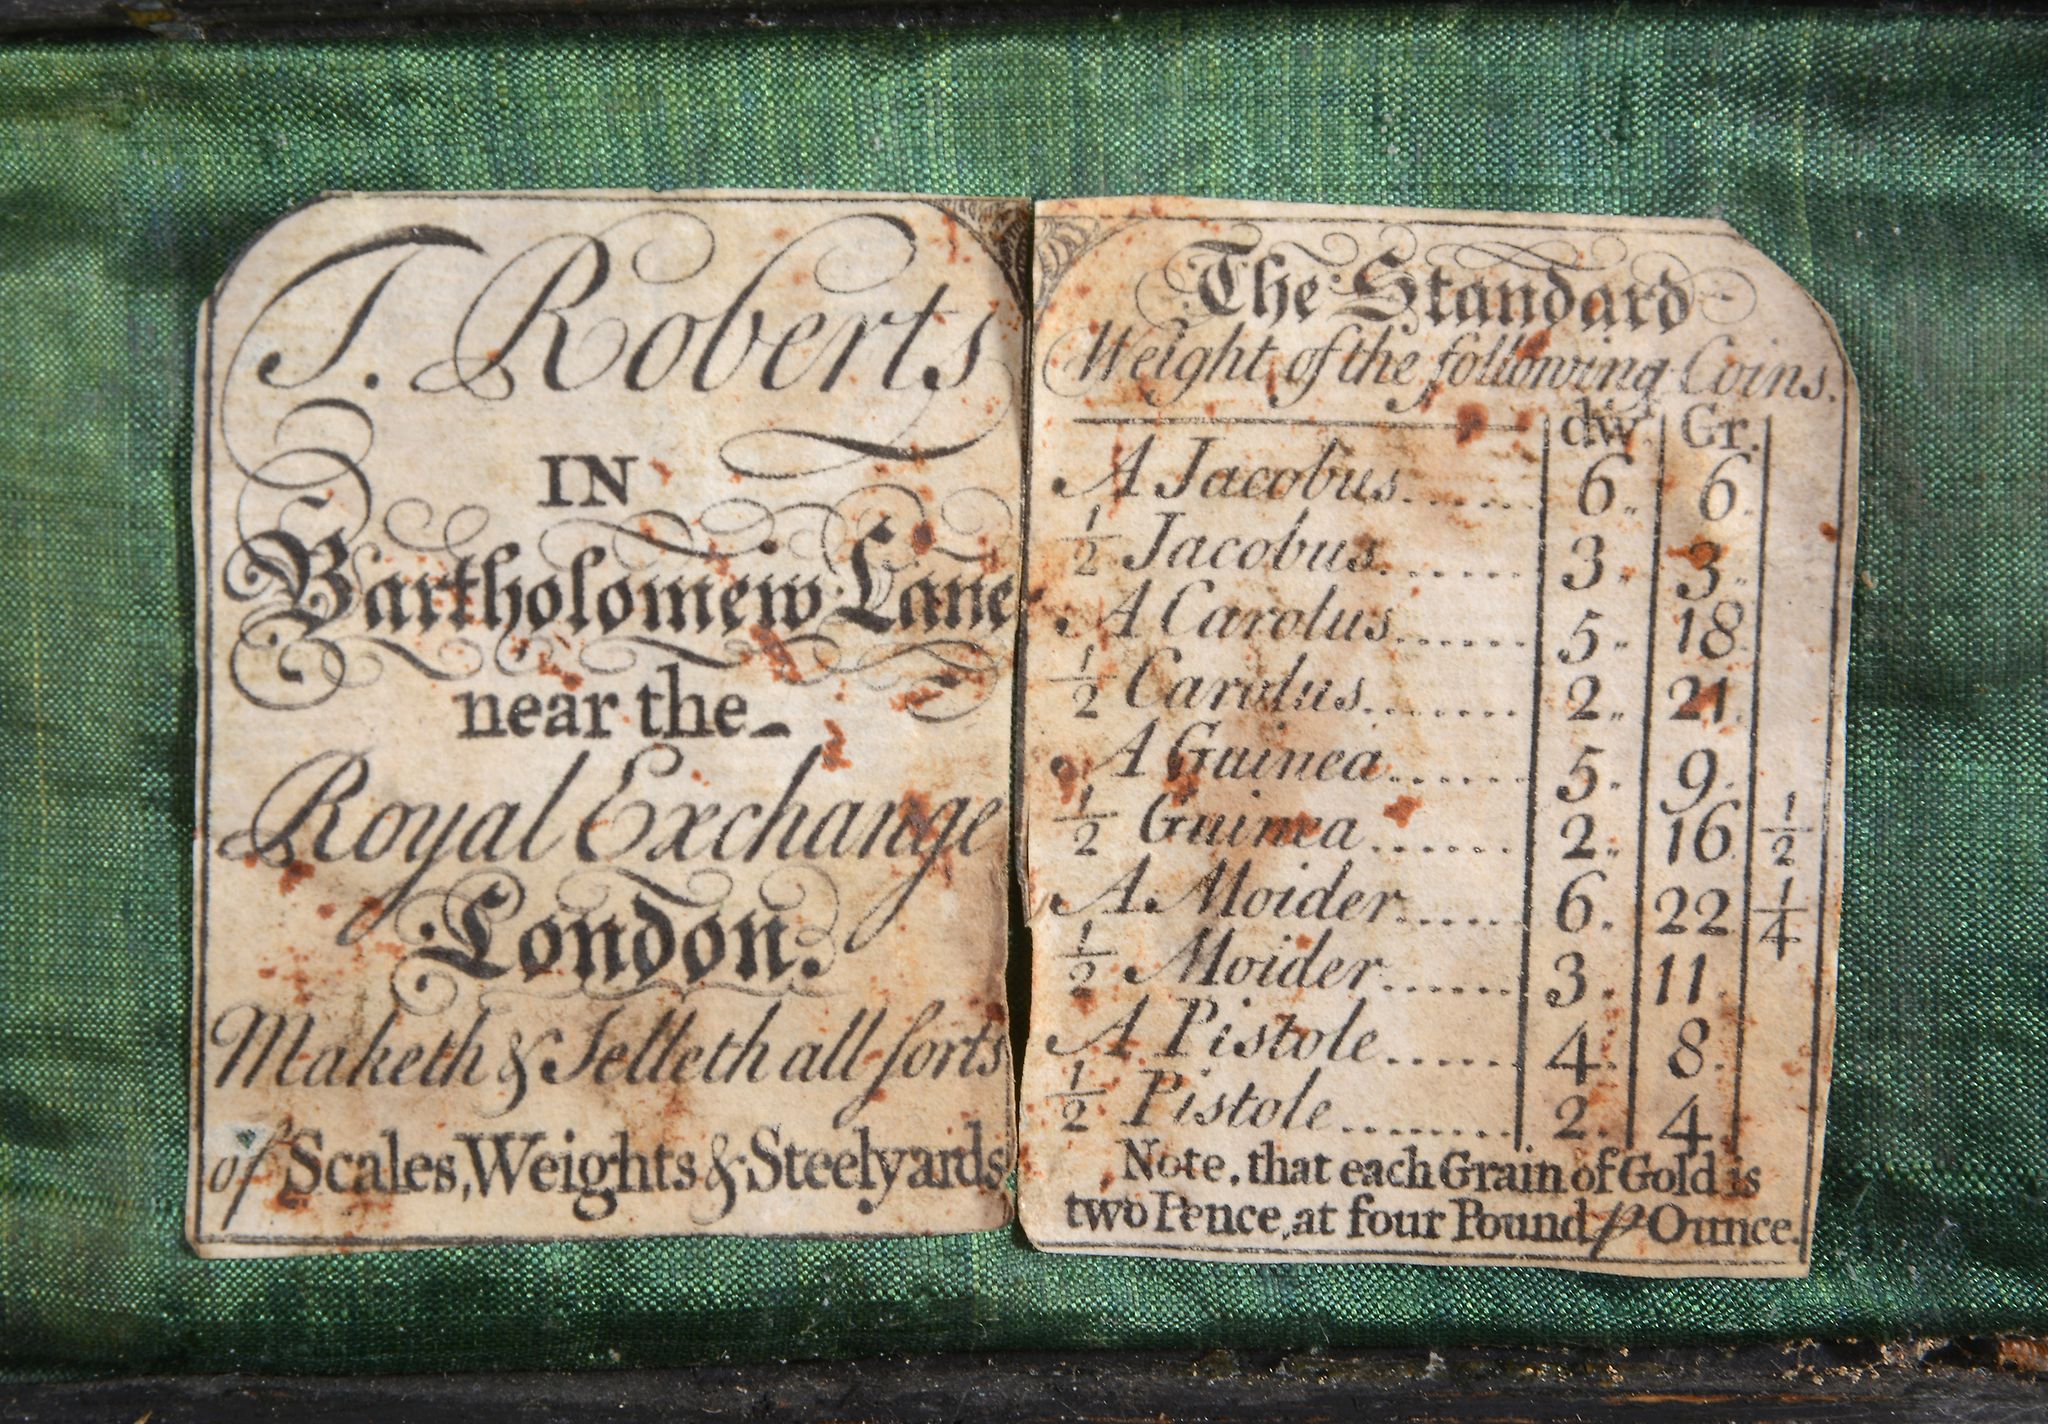 T. Roberts
IN
Bartholomew Lane
near the
Royal Exchange
London.
Maketh & Selleth all sorts
of Scales, Weights & Steelyards
The Standard
Weight of the following Coins.
dwt. Gr.
A Jacobus 6 6
1/2 Jacobus 3 3
A Carolus 5 18
1/2 Carolus 2 21
A Guinea 5 9
1/2 Guinea 2 16 1/2
A Moider 6 22 1/4
1/2 Moider 3 11
A Pistole 4 8
1/2 Pistole 2 4
Note, that each Grain of Gold is
two Pence, at four Pound p Ounce.